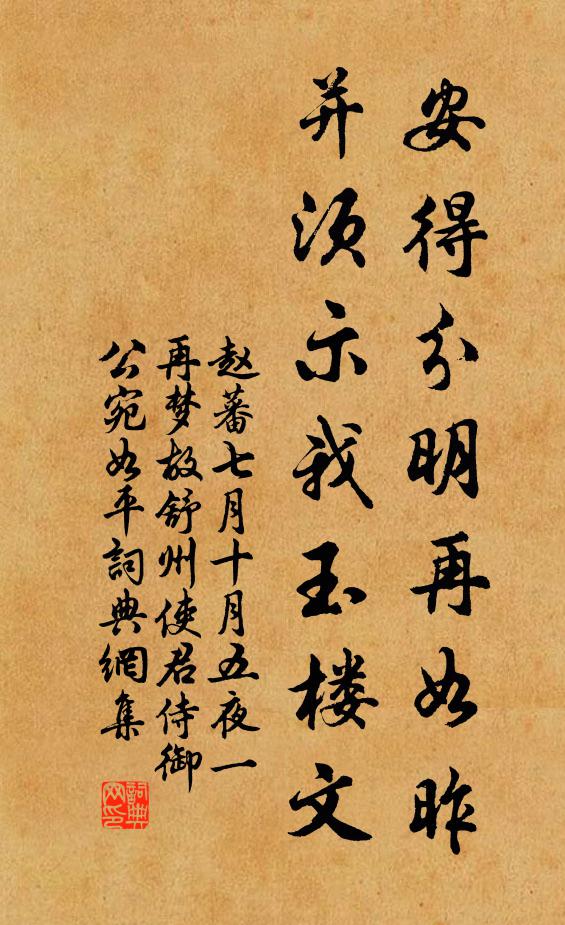 安得分明再如昨
并须示我玉楼文
赵蕃七月十月五夜一
再梦故舒州使君侍御
公宛如平詞典網集
詞典网印